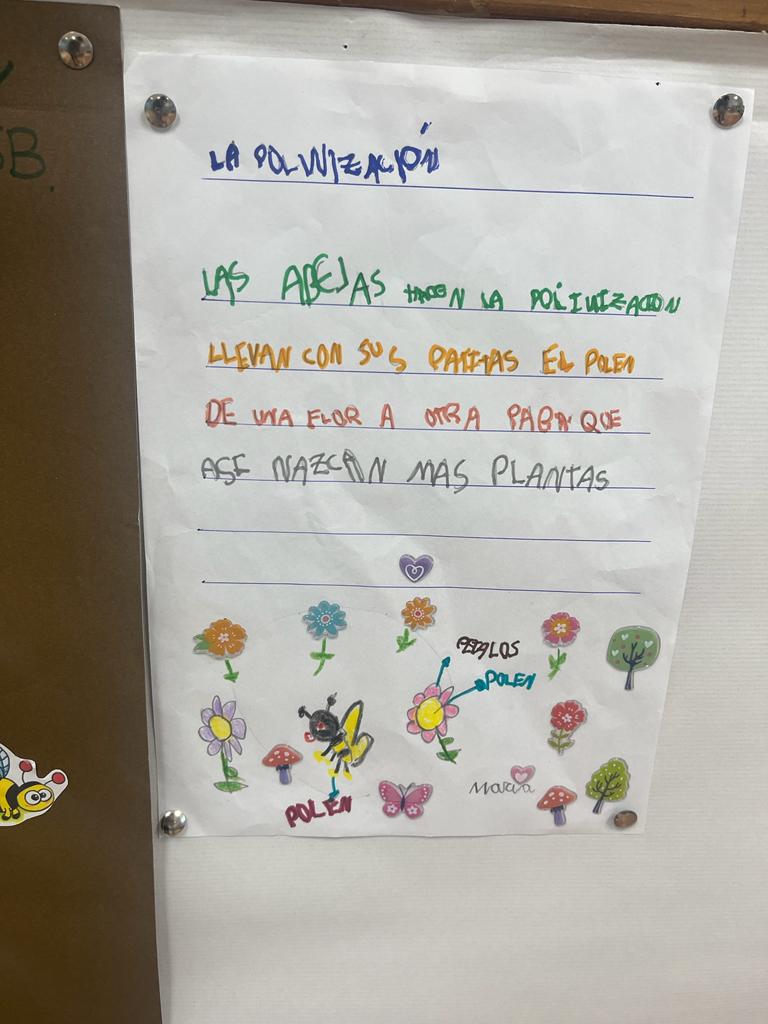 LA POLINIZACIÓN
LAS ABEJAS HACEN LA POLINIZACION
LLEVAN CON SUS PATITAS EL POLEN
DE UNA FLOR A OTRA PARA QUE
ASI NAZCAN MAS PLANTAS
PETALOS
POLEN
POLEN
Maria
B.